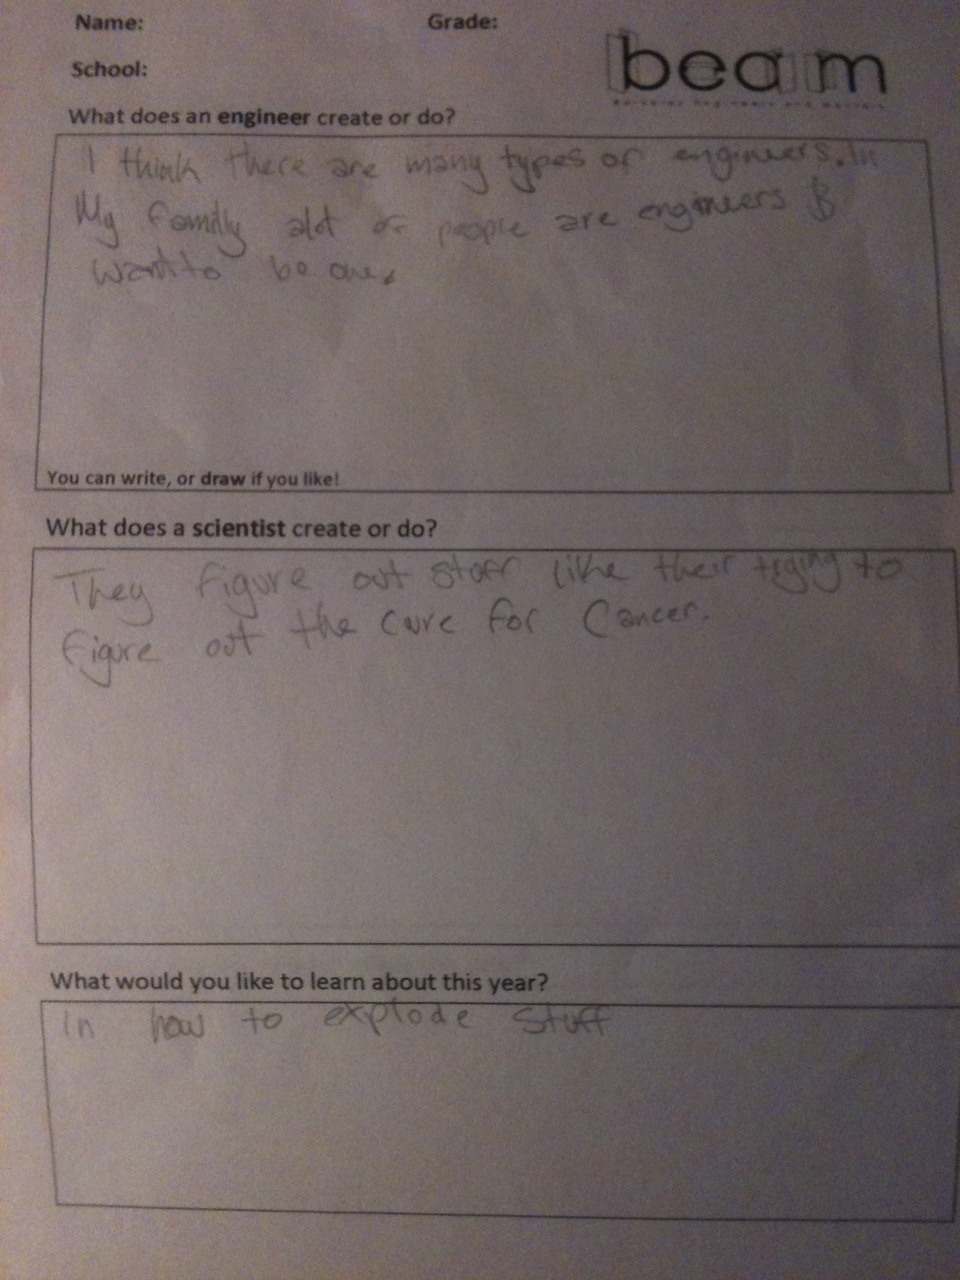 Name: Grade:
School:
beam
Berkeley Engineers and Mentors
What does an engineer create or do?
I think there are many types of engineers. In
My family alot of people are engineers &
want to be one.
You can write, or draw if you like!
What does a scientist create or do?
They figure out stuff like their trying to
figure out the cure for Cancer.
What would you like to learn about this year?
In how to explode stuff